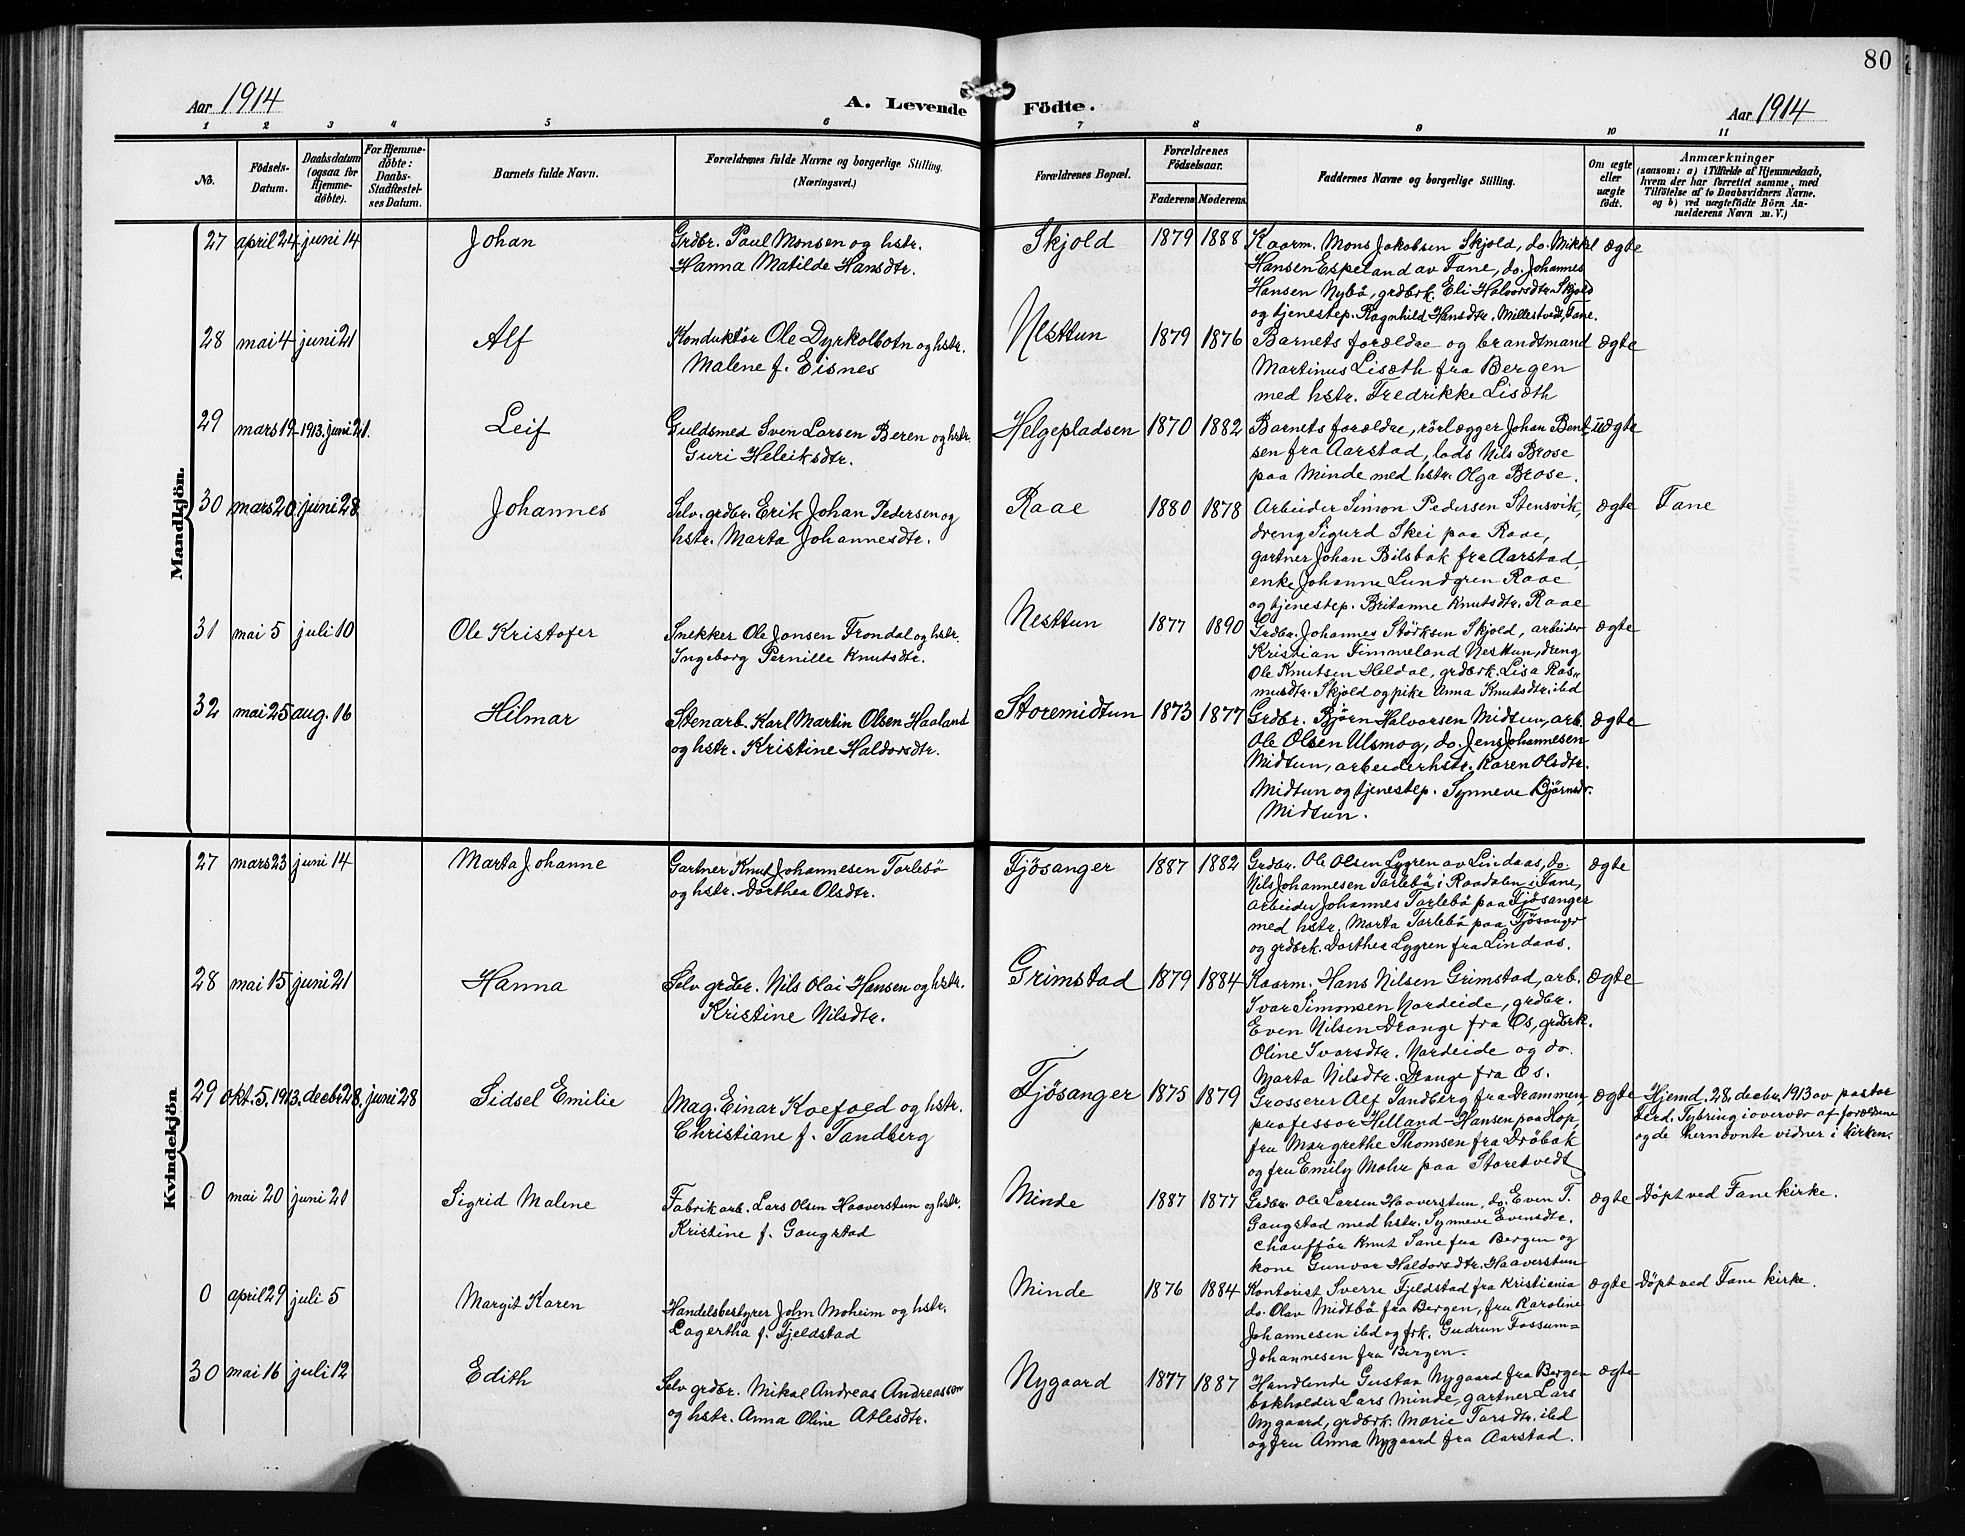 80
Aar 1914
A. Levende Födte.
Aar 1914
1 2 3 4 5 6 7 8 9 10 11
No.
Födsels-
Datum.
Daabsdatum
(ogsaa for
Hjemme-
döbte).
For Hjemme-
döbte:
Daabs-
Stadfæstel-
ses Datum.
Barnets fulde Navn.
Forældrenes fulde Navne og borgerlige Stilling.
(Næringsvei.)
Forældrenes Bopæl.
Forældrenes
Födselsaar.
Faderens Moderens
Faddernes Navne og borgerlige Stilling.
Om ægte
eller
uægte
født.
Anmærkninger
(saasom: a) i Tilfælde af Hjemmedaab,
hvem der har forrettet samme, med
Tilføielse af to Daabsvidners Navne,
og b) ved uægtefødte Börn An-
melderens Navn m. V.)
Mandkjön.
27 april 24 juni 14 Johan
Grdbr. Paul Monsen og hstr.
Hanna Matilde Hansdtr.
Skjold 1879 1888
Kaarm. Mons Jakobsen Skjold, do. Mikkel
Hansen Espeland av Fane, do. Johannes
Hansen Nybö, grdbrk. Eli Halvorsdtr. Skjold
og tjenestep. Ragnhild Hansdtr. Millestvedt, Fane.
ægte
28 mai 4 juni 21 Alf
Konduktör Ole Dyrkolbotn og hstr.
Malene f. Eisnes
Nesttun 1879 1876
Barnets forældre og brandtmand
Martinus Lisæth fra Bergen
med hstr. Fredrikke Lisæth
ægte
29 mars 19 1913. juni 21. Leif
Guldsmed Sven Larsen Beren og hstr.
Guri Heleiksdtr.
Helgepladsen 1870 1882
Barnets forældre, rörlægger Johan Bent-
sen fra Aarstad, lods Nils Brose
paa Minde med hstr. Olga Brose.
uægte
30 mars 20 juni 28 Johannes
Selv. grdbr. Erik Johan Pedersen og
hstr. Marta Johannesdtr.
Raae 1880 1878
Arbeider Simon Pedersen Stensvik,
dreng Sigurd Skei paa Raae,
gartner Johan Bilsbak fra Aarstad,
enke Johanne Lundgren Raae
og tjenestep. Britanne Knutsdtr. Raae
ægte Fane
31 mai 5 juli 10 Ole Kristofer
Snekker Ole Jonsen Frondal og hstr.
Ingeborg Pernille Knutsdtr.
Nesttun 1877 1890
Grdbr. Johannes Störksen Skjold, arbeider
Kristian Fimmeland Nesttun, dreng
Ole Knutsen Heldal, grdbrk. Lisa Ras-
musdtr. Skjold og pike Anna Knutsdtr. ibd
ægte
32 mai 25 aug. 16 Hilmar
Stenarb. Karl Martin Olsen Haaland
og hstr. Kristine Haldorsdtr.
Storemidtun 1873 1877
Grdbr. Bjørn Halvorsen Midtun, arb.
Ole Olsen Ulsmog, do. Jens Johannesen
Midtun, arbeiderhstr. Karen Olsdtr.
Midtun og tjenestep. Synneve Bjørnsdr.
Midtun.
ægte
Kvindekjön
27 mars 23 juni 14 Marta Johanne
Gartner Knut Johannesen Tarlebö
og hstr. Dorthea Olsdtr.
Fjösanger 1887 1882
Grdbr. Ole Olsen Lygren av Lindaas, do.
Nils Johannesen Tarlebö i Raadalen i Fane,
arbeider Johannes Tarlebö paa Fjösanger
med hstr. Marta Tarlebö paa Fjösanger
og grdbrk. Dorthea Lygren fra Lindaas.
ægte
28 mai 15 juni 21 Hanna
Selv grdbr. Nils Olai Hansen og hstr.
Kristine Nilsdtr.
Grimstad 1879 1884
Kaarm. Hans Nilsen Grimstad, arb.
Ivar Simonsen Nordeide, grdbr.
Even Nilsen Drange fra Os, grdbrk.
Oline Ivarsdtr. Nordeide og do.
Marta Nilsdtr. Drange fra Os.
ægte
29 okt. 5. 1913. decbr 28. juni 28 Sidsel Emilie
Mag. Einar Koefoed og hstr.
Christiane f. Tandberg
Fjösanger 1875 1879
Grosserer Alf Tandberg fra Drammen,
professor Helland-Hansen paa Hop,
fru Margrethe Thomsen fra Dröbak
og fru Emily Mohr paa Storetvedt
ægte
Hjemd. 28. decbr. 1913 av pastor
Ferd. Tybring i overvær af forældrene
og de hernævnte vidner i kirken.
0 mai 20 juni 21 Sigrid Malene
Fabrikarb. Lars Olsen Haaverstun og hstr.
Kristine f. Gangstad
Minde 1887 1877
Grdbr. Ole Larsen Haaverstun, do. Even T.
Gangstad med hstr. Synneve Evensdtr.
chauffør Knut Sane fra Bergen og
kone Gunvor Haldorsdtr. Haaverstun
ægte Döpt ved Fane kirke.
0 april 29 juli 5 Margit Karen
Handelsbestyrer John Moheim og hstr.
Lagertha f. Fjeldstad
Minde 1876 1884
Kontorist Sverre Fjeldstad fra Kristiania
do. Olav Midtbö fra Bergen, fru Karoline
Johannesen ibd og frk. Gudrun Fossum-
Johannesen fra Bergen.
ægte Döpt ved Fane kirke.
30 mai 16 juli 12 Edith
Selv grdbr. Mikal Andreas Andreassen
og hstr. Anna Oline Atlesdtr.
Nygaard 1877 1887
Handlende Gustav Nygaard fra Bergen
bokholder Lars Minde, gartner Lars
Nygaard, grdbrk. Marie Larsdtr. ibd
og fru Anna Nygaard fra Aarstad.
ægte